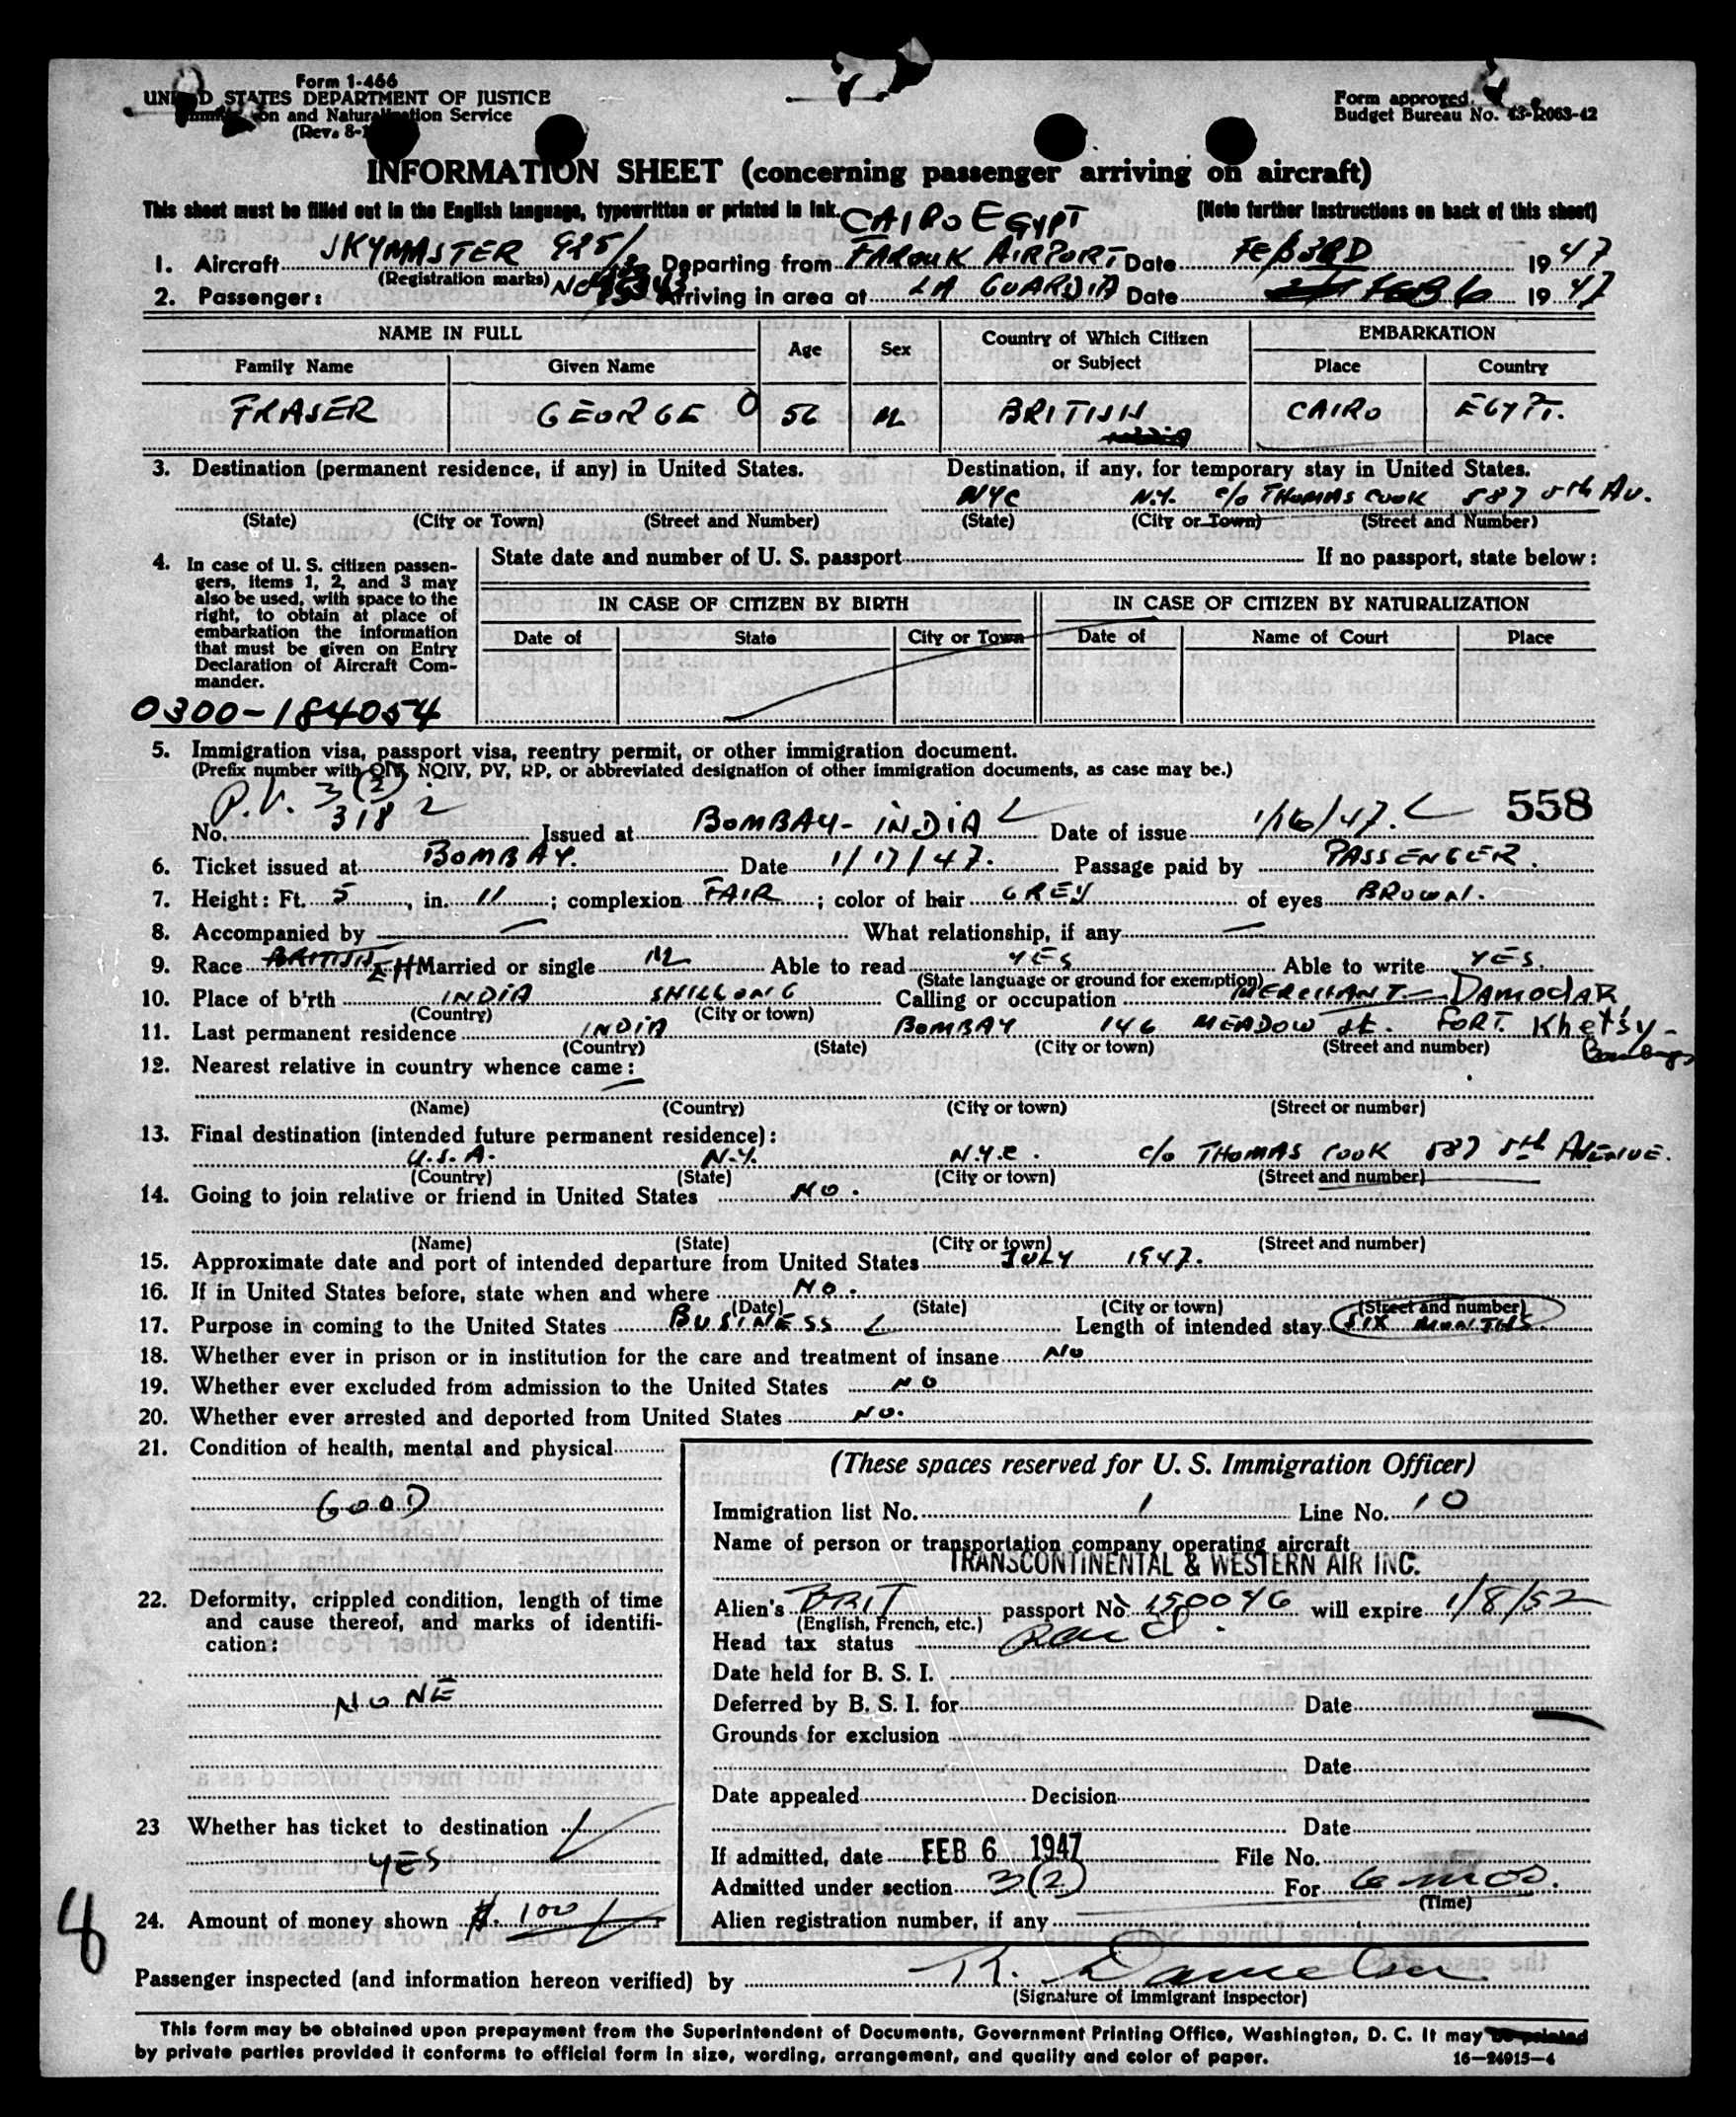 Form 1-466
UNITED STATES DEPARTMENT OF JUSTICE
on and Naturalization Service
(Rev. 8-1
Form approved.
Budget Bureau No. 43-R063-42
INFORMATION SHEET (concerning passenger arriving on aircraft)
This sheet must be filled out in the English language, typewritten or printed in ink.
[Note further instructions on back of this sheet]
CAIRO EGYPT
1. Aircraft SKYMASTER 925/ Departing from FAROUK AIRPORT Date FEB 3RD 1947
(Registration marks)
2. Passenger: No Arriving in area at LA GUARDIA Date FEB 6 1947
NAME IN FULL Age Sex Country of Which Citizen or Subject EMBARKATION
Family Name Given Name Place Country
FRASER GEORGE O 56 M BRITISH CAIRO EGYPT.
3. Destination (permanent residence, if any) in United States. Destination, if any, for temporary stay in United States.
NYC N.Y. c/o THOMAS COOK 587 5th AV.
(State) (City or Town) (Street and Number) (State) (City or Town) (Street and Number)
4. In case of U. S. citizen passen-
gers, items 1, 2, and 3 may
also be used, with space to the
right, to obtain at place of
embarkation the information
that must be given on Entry
Declaration of Aircraft Com-
mander.
State date and number of U. S. passport If no passport, state below:
IN CASE OF CITIZEN BY BIRTH IN CASE OF CITIZEN BY NATURALIZATION
Date of State City or Town Date of Name of Court Place
0300-184054
5. Immigration visa, passport visa, reentry permit, or other immigration document.
(Prefix number with QIV, NQIV, PV, RP, or abbreviated designation of other immigration documents, as case may be.)
P.V. 3(2)
558
No. 318 Issued at BOMBAY - INDIA Date of issue 1/16/47.
6. Ticket issued at BOMBAY. Date 1/17/47. Passage paid by PASSENGER.
7. Height: Ft. 5, in. 11; complexion FAIR; color of hair GREY of eyes BROWN.
8. Accompanied by — What relationship, if any —
9. Race BRITISH Married or single M Able to read YES Able to write YES.
(State language or ground for exemption)
10. Place of birth INDIA SHILLONG Calling or occupation MERCHANT - DAMODAR
(Country) (City or town)
11. Last permanent residence INDIA BOMBAY 146 MEADOW St. FORT. Khetsy-
Bombay
(Country) (State) (City or town) (Street and number)
12. Nearest relative in country whence came: —
(Name) (Country) (City or town) (Street or number)
13. Final destination (intended future permanent residence):
U.S.A. N.Y. N.Y.C. c/o THOMAS COOK 587 5th AVENUE.
(Country) (State) (City or town) (Street and number)
14. Going to join relative or friend in United States NO.
(Name) (State) (City or town) (Street and number)
15. Approximate date and port of intended departure from United States JULY 1947.
16. If in United States before, state when and where NO.
(Date) (State) (City or town) (Street and number)
17. Purpose in coming to the United States BUSINESS Length of intended stay SIX MONTHS.
18. Whether ever in prison or in institution for the care and treatment of insane NO
19. Whether ever excluded from admission to the United States NO
20. Whether ever arrested and deported from United States NO.
21. Condition of health, mental and physical
GOOD
22. Deformity, crippled condition, length of time
and cause thereof, and marks of identifi-
cation:
NONE
23 Whether has ticket to destination
YES
24. Amount of money shown $. 100
8
(These spaces reserved for U. S. Immigration Officer)
Immigration list No. 1 Line No. 10
Name of person or transportation company operating aircraft
TRANSCONTINENTAL & WESTERN AIR INC.
Alien's BRIT passport No. 150046 will expire 1/8/52
(English, French, etc.)
Head tax status Paid
Date held for B. S. I.
Deferred by B. S. I. for Date
Grounds for exclusion
Date
Date appealed Decision
Date
If admitted, date FEB 6 1947 File No.
Admitted under section 3(2) For 6 mos.
(Time)
Alien registration number, if any
Passenger inspected (and information hereon verified) by R. Danielson
(Signature of immigrant inspector)
This form may be obtained upon prepayment from the Superintendent of Documents, Government Printing Office, Washington, D. C. It may be printed
by private parties provided it conforms to official form in size, wording, arrangement, and quality and color of paper. 16-24915-4